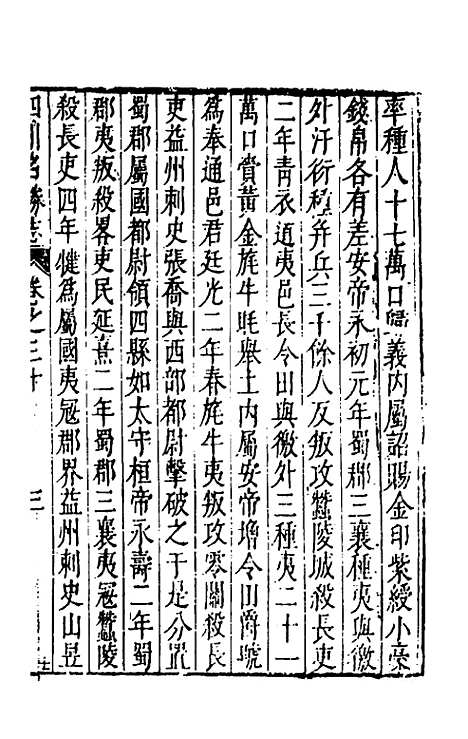 率種人十七萬口歸義内屬詔賜金印紫綬小豪
錢帛各有差安帝永初元年蜀郡三襄種夷與徼
外汙衍種幷兵三千餘人反叛攻蠶陵城殺長吏
二年青衣道夷邑長令田與徼外三種夷二十一
萬口賞黃金旄牛毦舉土内屬安帝增令田爵號
為奉通邑君延光二年春旄牛夷叛攻零關殺長
吏益州刺史張喬與西部都尉擊破之于是分置
蜀郡屬國都尉領四縣如太守桓帝永壽二年蜀
郡夷叛殺畧吏民延熹二年蜀郡三襄夷冦蠶陵
殺長吏四年犍為屬國夷冦郡界益州刺史山昱
四川名勝志 卷之三十 三